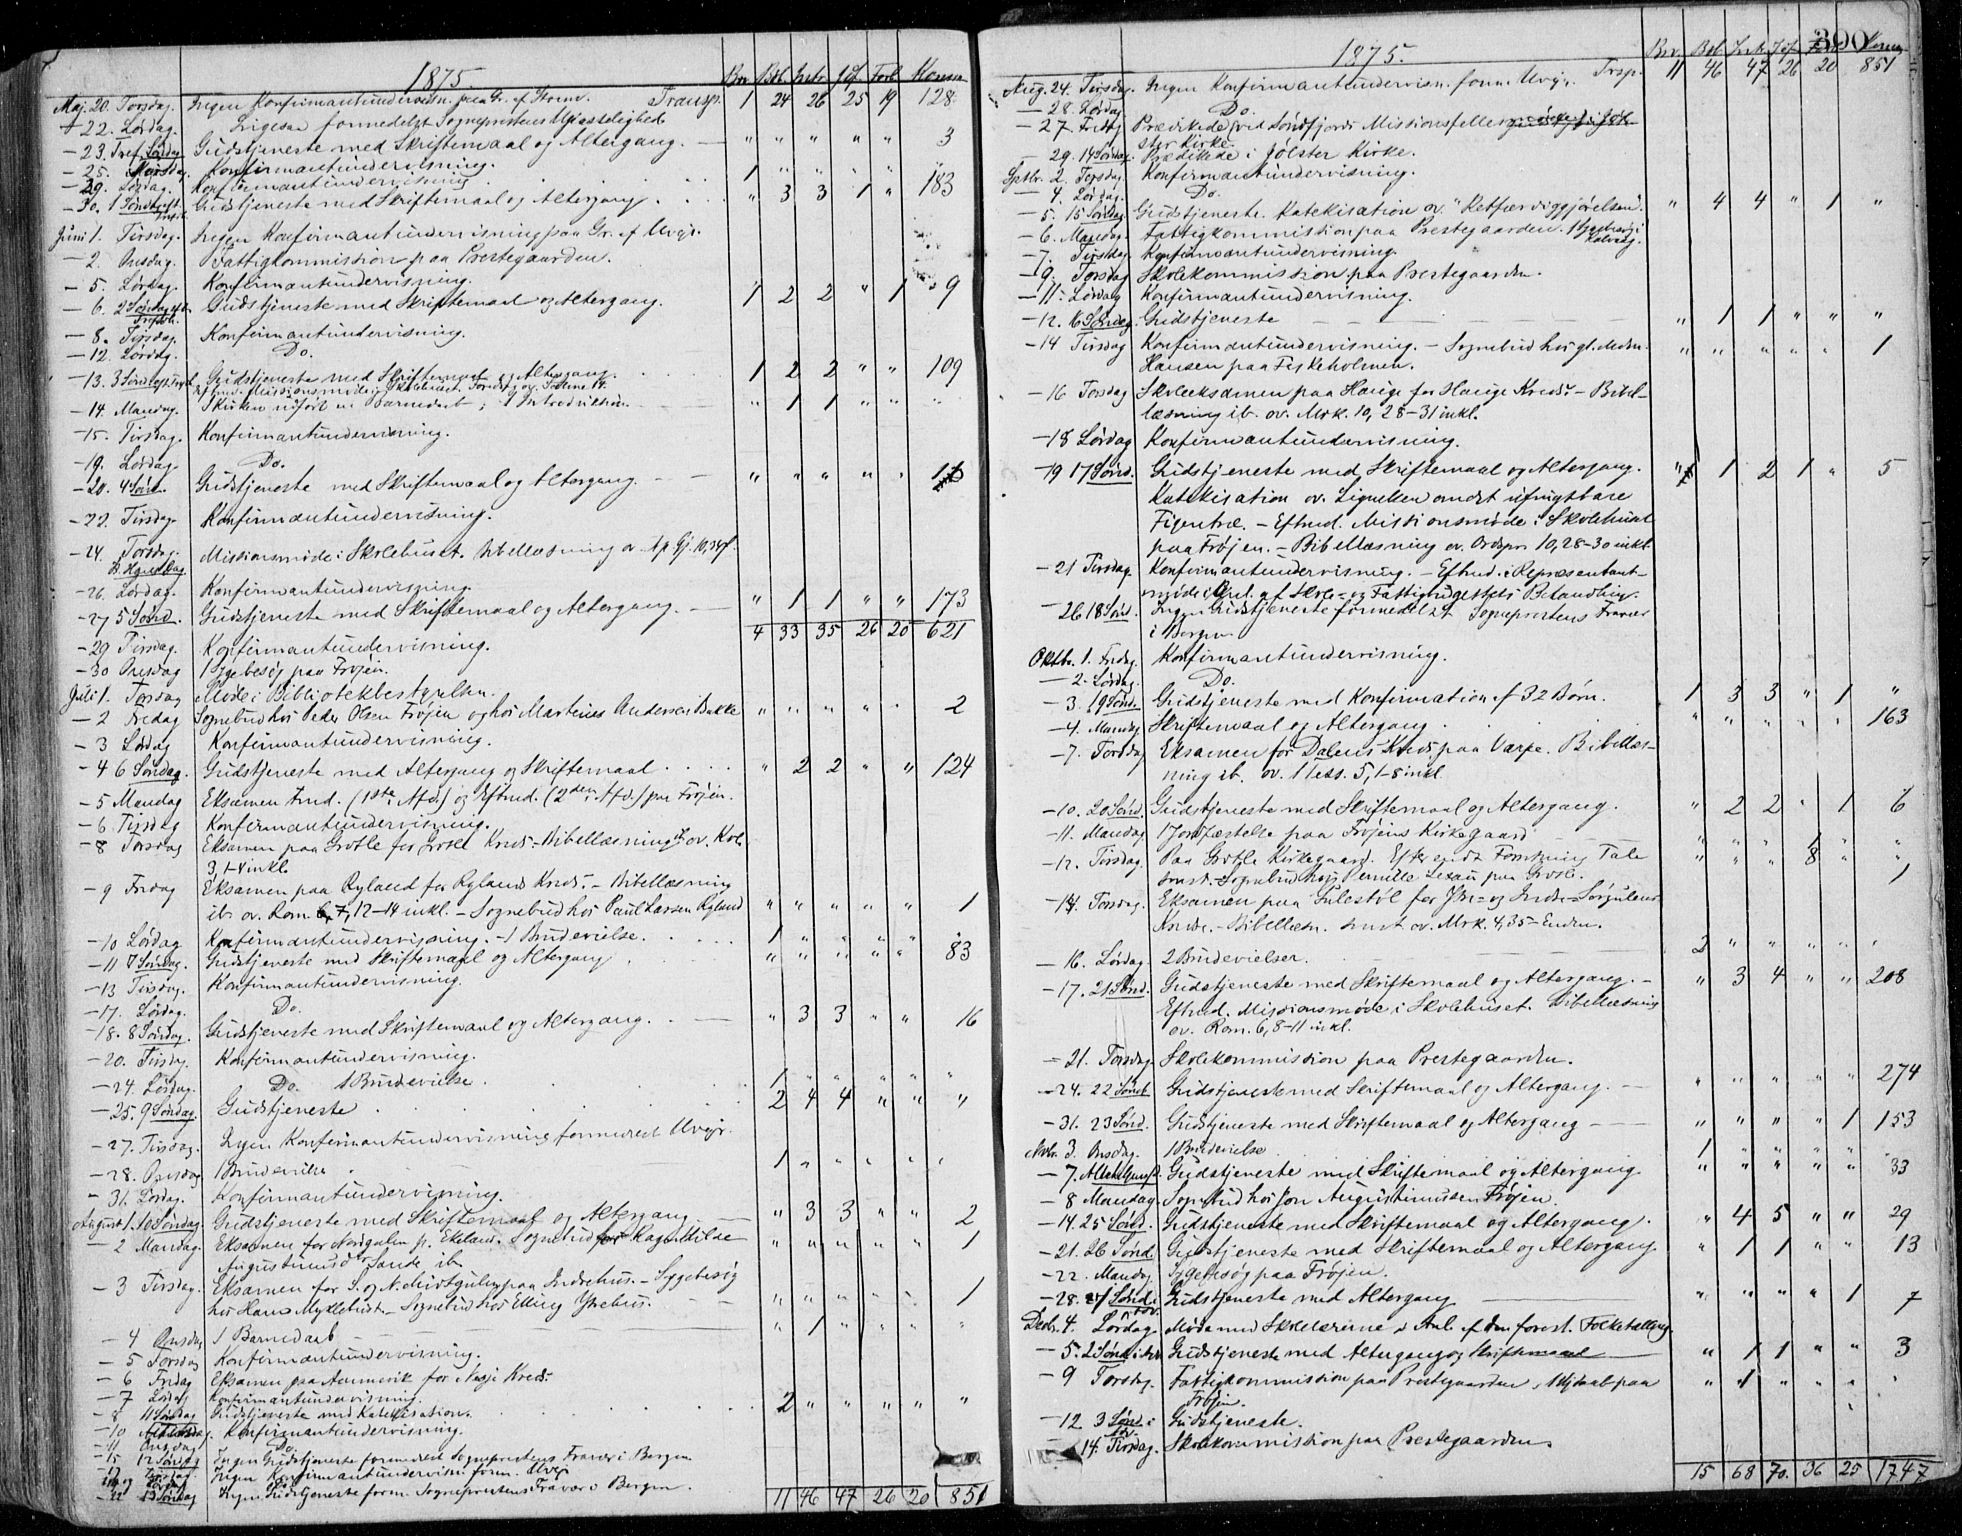 1875.
Brv. Btl. Intr. Jdf. Forl. Komm.
Maj. 20. Torsdag. Ingen Konfirmantundervisn. paa Gr. af Storm. Transp. 1 24 26 25 19 128
- 22. Lørdag. Ligesaa formedelst Sogneprestens Upasselighed
- 23. Tref. Søndag Gudstjeneste med Skriftemaal og Altergang. " " " " " 3
- 25. Tirsdag. Konfirmantundervisning. 1 " " " " "
- 29. Lørdag. Konfirmantundervisning
- 30. 1 Sønd. eft. Gudstjeneste med Skriftemaal og Altergang. " 3 3 1 " 183
Juni 1. Tirsdag. Ingen Konfirmantundervisning paa Gr. af Uvejr.
- 2. Onsdag. Fattigkommission paa Prestegaarden.
- 5. Lørdag. Konfirmantundervisning.
- 6. 2 Søndag eft. Trefoldh. Gudstjeneste med Skriftemaal og Altergang. 1 2 2 " 1 9
- 8. Tirsdag. Konfirmantundervisning.
- 12. Lørdag. Do.
- 13. 3 Sønd. eft. Tref. Gudstjeneste med Skriftemaal og Altergang. 1 2 2 " " 109
Eftmd. Missionsmøde i Skolehuset.
- 14. Mandag. I Kirken udført en Barnedaab; 1 Introduktion. " 1 1 " " "
- 15. Tirsdag. Konfirmantundervisning.
- 19. Lørdag. Do.
- 20. 4 Sønd. Gudstjeneste med Skriftemaal og Altergang. " " " " "
- 22. Tirsdag. Konfirmantundervisning.
- 24. Torsdag. Missionsmøde i Skolehuset. Bibellæsning ov. Ap. Gj. 10, 34 f.
- 26. Lørdag. Konfirmantundervisning.
- 27 5 Sønd. Gudstjeneste med Skriftemaal og Altergang. " 1 1 " " 173
4 33 35 26 20 621
- 29 Tirsdag. Konfirmantundervisning.
- 30 Onsdag 1 Sygebesøg paa Frøjen.
Juli 1. Torsdag Møde i Bibliotekbestyrelsen.
- 2 Fredag Sognebud hos Peder Olsen Frøjen og hos Martinus Andersen Bakke " " " " " 2
- 3 Lørdag Konfirmantundervisning.
- 4 6 Søndag. Gudstjeneste med Altergang og Skriftemaal " 2 2 " " 124
- 5 Mandag Eksamen Fmd. (1ste Afd.) og Eftmd. (2den Afd.) paa Frøjen.
- 6 Tirsdag Konfirmantundervisning.
- 8 Torsdag Eksamen paa Grotle for Grotle Kreds. - Bibellæsning ib. ov. Kol.
3, 1-4 inkl.
- 9 Fredag Eksamen paa Ryland for Rylands Kreds. - Bibellæsning
ib. ov. Rom. 6, 7, 12-14 inkl. - Sognebud hos Paul Larsen Ryland " " " " " 1
- 10 Lørdag Konfirmantundervisning. - 1 Brudevielse. 1 " " " " "
- 11 7 Søndag. Gudstjeneste med Skriftemaal og Altergang " " " " " 83
- 13 Tirsdag. Konfirmantundervisning.
- 17. Lørdag. Do.
- 18. 8 Søndag. Gudstjeneste med Skriftemaal og Altergang. " 3 3 " " 16
- 20. Tirsdag. Konfirmantundervisning.
- 24. Lørdag. Do. 1 Brudevielse. 1 " " " " "
- 25. 9 Søndag. Gudstjeneste 2 4 4 " " "
- 27. Tirsdag. Ingen Konfirmantundervisning formedelst Uvejr.
- 28. Onsdag 1 Brudevielse. 1 " " " " "
- 31. Lørdag. Konfirmantundervisning.
August 1. 10 Søndag. Gudstjeneste med Skriftemaal og Altergang " 3 3 " " 2
- 2 Mandag. Eksamen for Nordgulen p. Ekeland. Sognebud hos Ragnhilde " " " " " 1
Augustinusd. Sande ib.
- 3 Tirsdag. Eksamen for S. og N. Midtgulen paa Indrehus. - Sygebesøg
hos Hans Myklebust. - Sognebud hos Elling Ytrehus. " " " " " 1
- 4 Onsdag 1 Barnedaab " 1 " " " "
- 5 Torsdag Konfirmantundervisning.
- 6 Fredag Eksamen paa for Kreds.
- 7 Lørdag Konfirmantundervisning.
- 8 11 Søndag Gudstjeneste med Katekisation. 2 " " " " "
- 10 Tirsdag. Konfirmantundervisning.
- 11 Onsdag Do.
- 15 12 Søndag Ingen Gudstjeneste formedelst Sogneprestens Fravær i Bergen
- 17 Tirsdag. Ingen Konfirmantundervisn. form. Uvejr
- 22 13 Søndag Ingen Gudstjeneste form. Sogneprestens Fravær i Bergen.
11 46 47 26 20 851
300
1875.
Brv. Btl. Intr. Jdf. Forl. Komm.
Aug. 24. Tirsdag. Ingen Konfirmantundervisn. form. Uvejr. Trsp. 11 46 47 26 20 851
- 28. Lørdag Do.
- 27. Fredag Prædikede ved Søndfjords Missionsfælles
ster Kirke.
- 29. 14 Søndag. Prædikede i Jølster Kirke.
Septbr. 2. Torsdag. Konfirmantundervisning.
- 4. Lørdag. Do.
- 5. 15 Søndag Gudstjeneste. Katekisation ov. "Retfærdiggjørelsen". " 4 4 " 1 "
- 6. Mandag. Fattigkommission paa Prestegaarden.
- 7. Tirsdag Konfirmantundervisning.
- 9. Torsdag Skolekommission paa Prestegaarden.
- 11. Lørdag Konfirmantundervisning.
- 12. 16 Søndag. Gudstjeneste " 1 1 " " "
- 14 Tirsdag Konfirmantundervisning. - Sognebud hos gl. Madm. " " " " " 1
Hansen paa Fiskeholmen.
- 16 Torsdag Skoleeksamen paa Hauge for Hauge Kreds. - Bibel-
læsning ib. ov. Mrk. 10, 28-31 inkl.
- 18 Lørdag Konfirmantundervisning.
- 19 17 Sønd. Gudstjeneste med Skriftemaal og Altergang. " 1 2 1 " 5
Katekisation ov. Lignelsen om det ufrugtbare
Figentræ. - Eftmd. Missionsmøde i Skolehuset
paa Frøjen. - Bibellæsning ov. Ordspr. 10, 28-30 inkl.
- 21 Tirsdag. Konfirmantundervisning. - Eftmd. i Repræsentant-
møde i Anl. af Skole- og Fattigbudgettets Behandling.
- 26 18 Sønd. Ingen Gudstjeneste formedelst Sogneprestens Fravær
i Bergen
Oktbr. 1. Fredag. Konfirmantundervisning.
- 2. Lørdag. Do.
- 3. 19 Sønd. Gudstjeneste med Konfirmation af 32 Børn. 1 3 3 " 1 "
- 4. Mandag Skriftemaal og Altergang. " " " " " 163
- 7. Torsdag Eksamen for Dalens Kreds paa Varpe. Bibellæs-
ning ib. ov. 1 Tess. 5, 1-8 inkl.
- 10. 20 Sønd. Gudstjeneste med Skriftemaal og Altergang. " 2 2 " 1 6
- 11. Mandag 1 Jordfæstelse paa Frøjens Kirkegaard " " " 1 " "
- 12. Tirsdag. Paa Grotle Kirkegaard. Efter endt Forretning Tale " " " 8 " 1
smst. - Sognebud hos Pernille paa Grotle.
- 14. Torsdag. Eksamen paa Gulestøl for Ytre- og Indre-Sørgulens
Kreds. - Bibellæsn. smst. ov. Mrk. 4, 35 - Enden.
- 16. Lørdag. 2 Brudevielser. 2 " " " " "
- 17. 21 Sønd. Gudstjeneste med Skriftemaal og Altergang. " 3 4 " " 208
Eftmd. Missionsmøde i Skolehuset. Bibellæsning
ov. Rom. 6, 8-11 inkl.
- 21. Torsdag. Skolekommission paa Prestegaarden.
- 24. 22 Sønd. Gudstjeneste med Skriftemaal og Altergang. " " " " " 274
- 31. 23 Sønd. Gudstjeneste med Skriftemaal og Altergang " " " " 1 153
Novbr. 3. Onsdag. 1 Brudevielse 1 " " " "
- 7. Gudstjeneste med Skriftemaal og Altergang. " " " " " 33
- 8 Mandag. Sognebud hos Jon Augustinussen Frøjen.
- 14. 25 Sønd. Gudstjeneste med Skriftemaal og Altergang. " 4 5 " " 29
- 21. 26 Sønd. Gudstjeneste med Skriftemaal og Altergang " 1 1 " " 13
- 22. Mandag Sygebesøg paa Frøjen.
- 28. Sønd. i Adv. Gudstjeneste med Altergang " " " " 1 7
Decbr. 4. Lørdag. Møde med Skolelærerne i Anl. af den forest. Folketælling.
- 5. 2 Sønd. i Adv. Gudstjeneste med Altergang og Skriftemaal " 1 1 " " 3
- 9 Torsdag. Fattigkommission paa Prestegaarden, 1 Hjdaab paa " 1 " " " "
Frøjen.
- 12. 3 Sønd. i Adv. Gudstjeneste.
- 14. Tirsdag. Skolekommission paa Prestegaarden.
15 68 70 36 25 1747